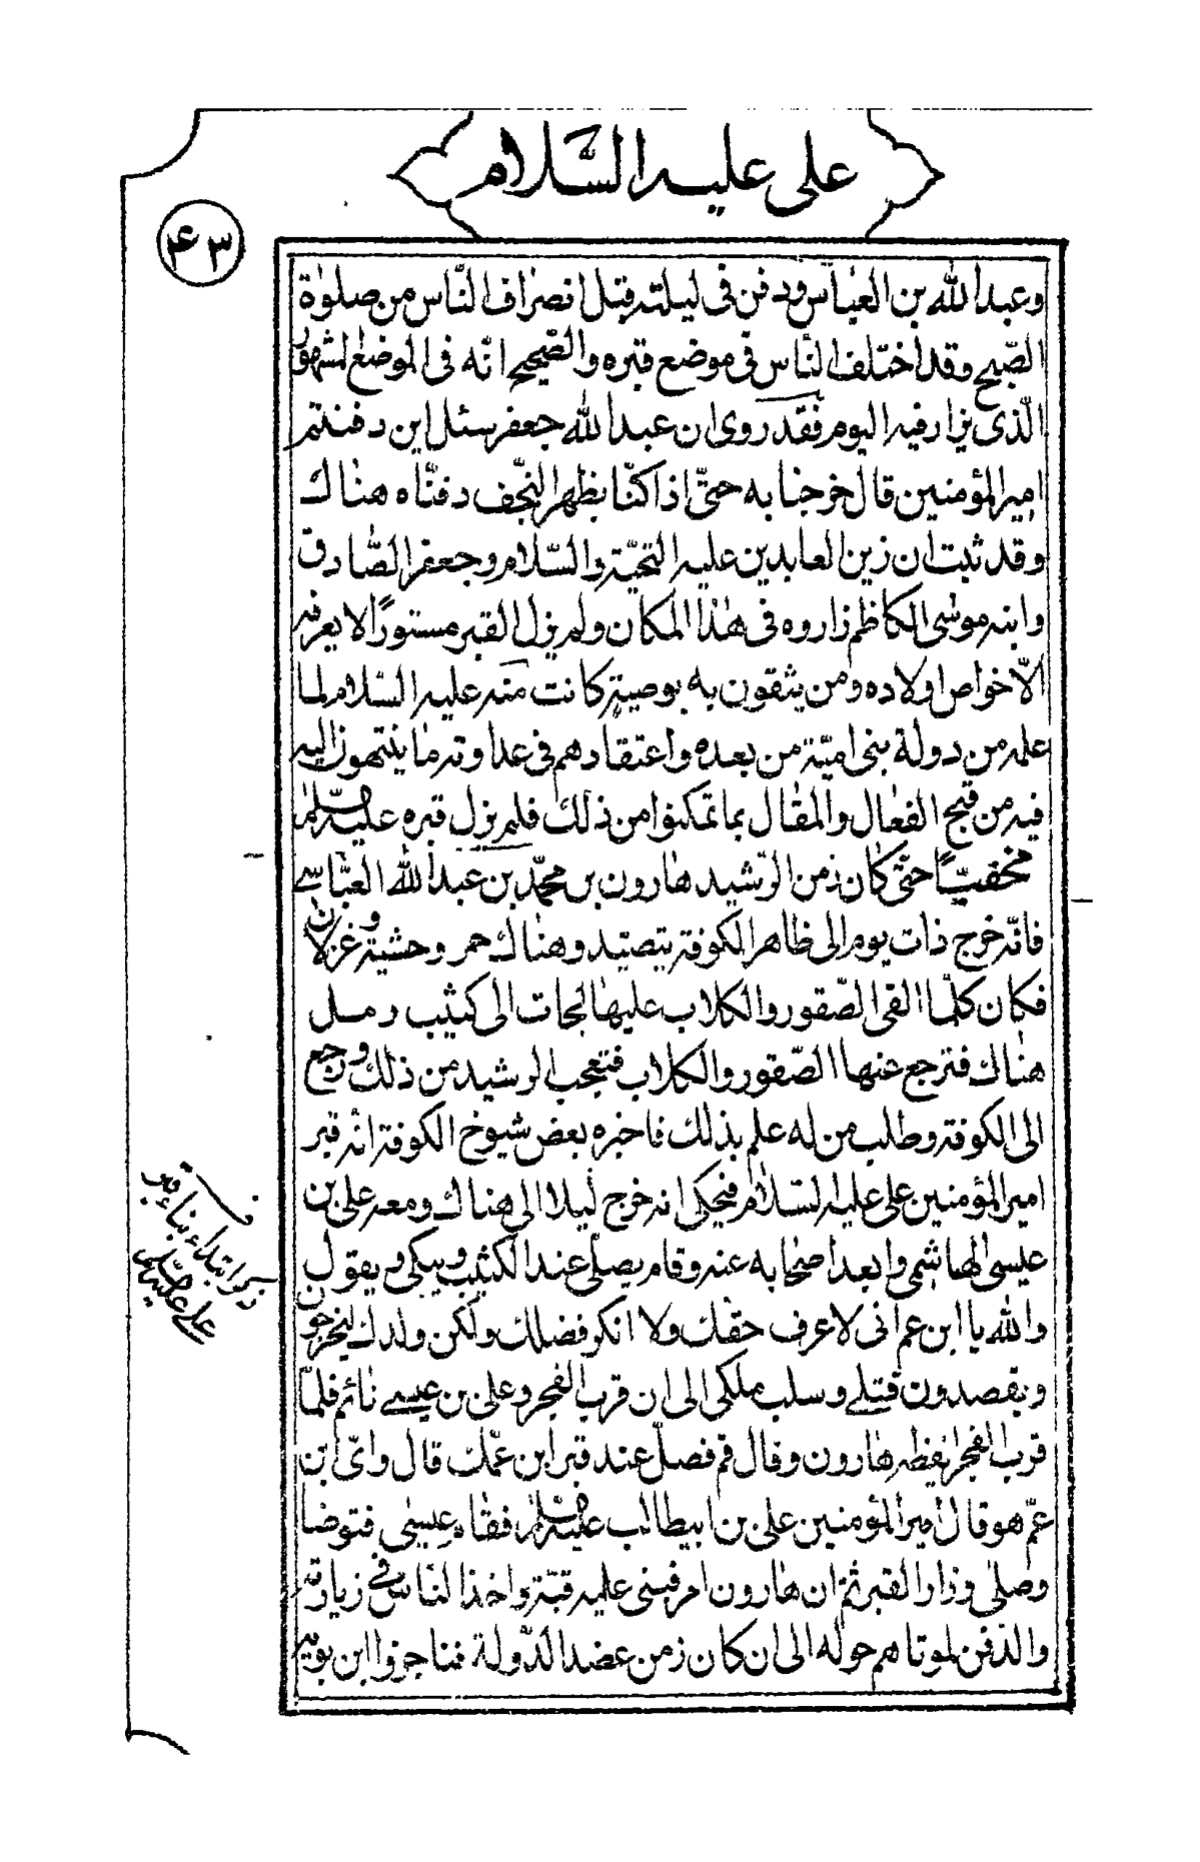 علی علیه السّلام
۴۳
وعبد الله بن العبّاس ودفن فی لیلته قبل انصراف النّاس من صلوة
الصّبح وقد اختلف النّاس فی موضع قبره والصّحیح انّه فی الموضع المشهور
الّذی یزار فیه الیوم فقد روی ان عبد الله جعفر سئل این دفنتم
امیر المؤمنین قال خرجنا به حتّی اذا کنّا بظهر النّجف دفنّاه هناك
وقد ثبت ان زین العابدین علیه التحیّة والسّلام وجعفر الصّادق
وابنه موسی الکاظم زاروه فی هذا المکان ولم یزل القبر مستورًا لا یعرفه
الّا خواص اولاده ومن یثقون به بوصیة کانت منه علیه السّلام لما
علمه من دولة بنی امیّة من بعده واعتقادهم فی عداوته ما ینتهون الیه
فیه من قبح الفعال والمقال بما تمکنوا من ذلك فلم یزل قبره علیه السّلم
مخفیّاً حتّی کان زمن الرّشید هارون بن محمّد بن عبد الله العبّاسی
فانّه خرج ذات یوم الی ظاهر الکوفة یتصیّد وهناك حمر وحشیة وغزلان
فکان کلّما القی الصّقور والکلاب علیها لجات الی کثیب رمل
هناك فترجع عنها الصّقور والکلاب فتعجب الرشید من ذلك ورجع
الی الکوفة وطلب من له علم بذلك فاخبره بعض شیوخ الکوفة انه قبر
امیر المؤمنین علی علیه السّلام فیحکی انه خرج لیلا الی هناك ومعه علی بن
عیسی الهاشمی وابعد اصحابه عنه وقام یصلی عند الکثیب ویبکی ویقول
والله یا ابن عم انی لاعرف حقك ولا انکر فضلك ولکن ولدك لیخرجون
ویقصدون قتلی وسلب ملکی الی ان قرب الفجر وعلی بن عیسی نائم فلمّا
قرب الفجر ایقظه هارون وقال قم فصلّ عند قبر ابن عمّك قال وایّ ابن
عمّ هو قال امیر المؤمنین علی بن ابیطالب علیه السّلم فقام عیسی فتوضا
وصلی وزار القبر ثم ان هارون امر فبنی علیه قبّة واخذ النّاس فی زیارته
والدّفن لموتاهم حوله الی ان کان زمن عضد الدّولة فناجزوا ابن بویه
ذکر ابتداء بناء قبر
علی علیه السّلم